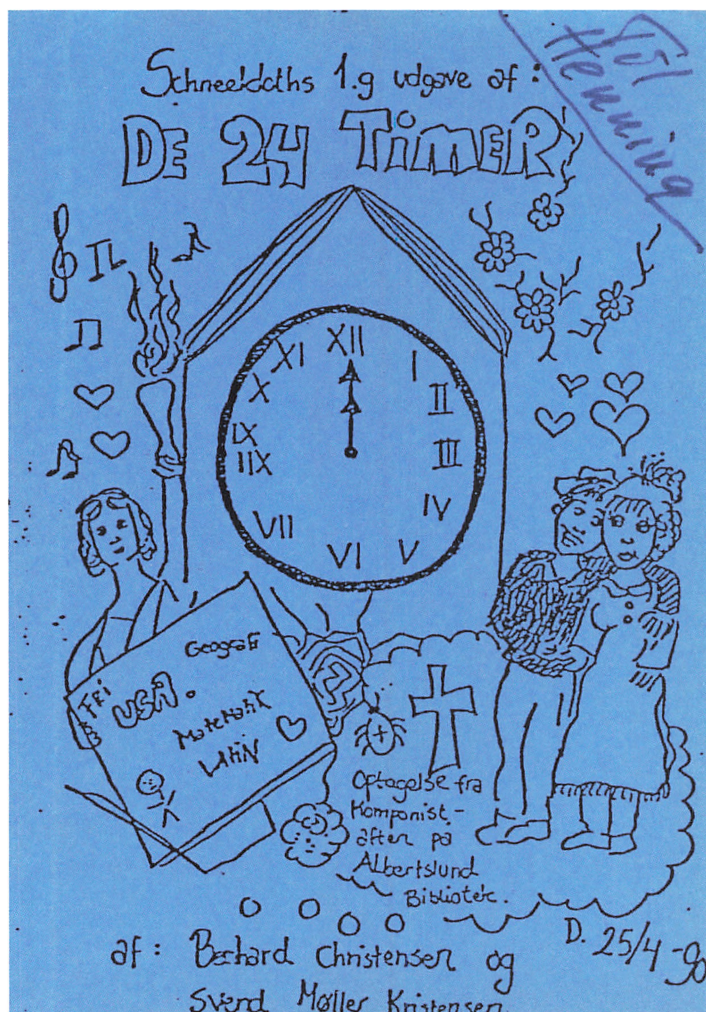 Schneekloths 1.g udgave af:
Til
Henning
DE 24 TIMER
XII
I
II
III
IV
V
VI
VII
IIX
IX
X
XI
Geografi
FRi
USA.
Matematik
LAtiN
Optagelse fra
Komponist-
aften på
Albertslund
Bibliotek.
D. 25/4-90
af: Berhard Christensen og
Svend Møller Kristensen